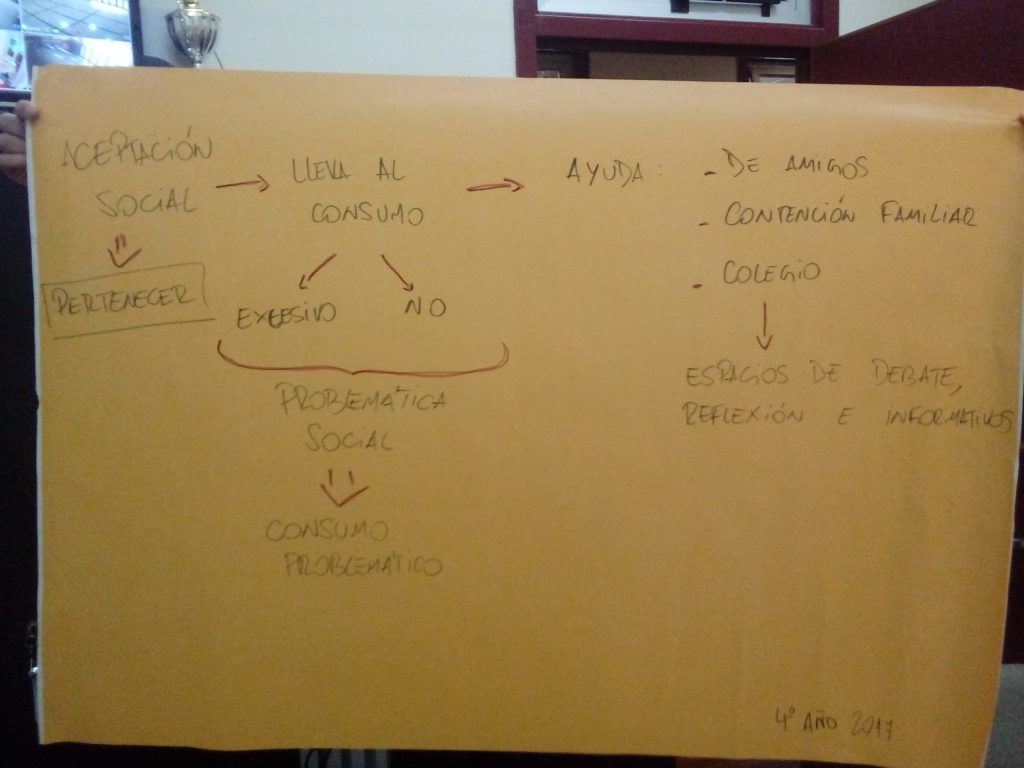 ACEPTACIÓN
SOCIAL
PERTENECER
LLEVA AL
CONSUMO
EXCESIVO
NO
PROBLEMÁTICA
SOCIAL
CONSUMO
PROBLEMÁTICO
AYUDA:
- DE AMIGOS
- CONTENCIÓN FAMILIAR
- COLEGIO
ESPACIOS DE DEBATE,
REFLEXIÓN E INFORMATIVOS
4° AÑO 2017